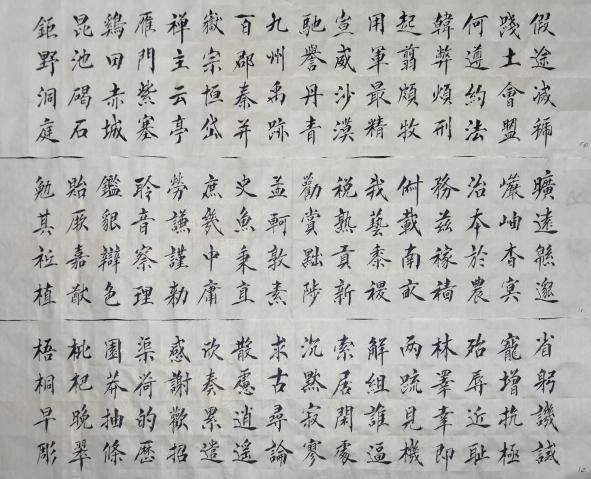 假途滅虢
踐土會盟
何遵約法
韓弊煩刑
起翦頗牧
用軍最精
宣威沙漠
馳譽丹青
九州禹跡
百郡秦并
嶽宗恒岱
禪主云亭
雁門紫塞
鷄田赤城
昆池碣石
鉅野洞庭
曠遠緜邈
巖岫杳冥
治本於農
務茲稼穡
俶載南畝
我藝黍稷
稅熟貢新
勸賞黜陟
孟軻敦素
史魚秉直
庶幾中庸
勞謙謹勅
聆音察理
鑑貌辯色
貽厥嘉猷
勉其祗植
省躬譏誡
寵增抗極
殆辱近耻
林睪幸即
兩疏見機
解組誰逼
索居閑處
沉默寂寥
求古尋論
散慮逍遙
欣奏累遣
慼謝歡招
渠荷的歷
園莽抽條
枇杷晚翠
梧桐早彫